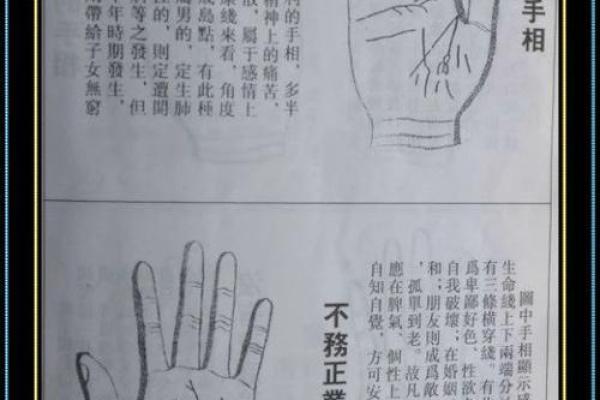 手相
的手相，多半
精神上的痛苦，
散，屬于感情上
康綫來看，角度
成島點，有此種
屬男的，定生肺
性的，則定遭開
病等之發生，但
年時期發生，
帶給子女無窮
圖中手相顯示感
生命綫上下兩端分
有三條橫穿綫。有
爲卑鄙好色、性欲
自我破壞；在婚姻
和；朋友則成爲敵
，孤單到老。故凡
應在脾氣、個性上
自知自覺，方可安
不務正業